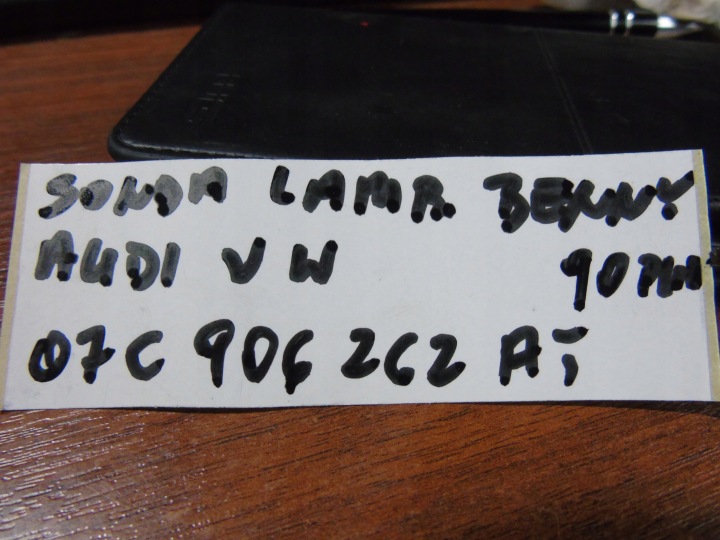 SONDA LAMB. BENZNY
AUDI VW 90 PLN
07C 906 262 AJ